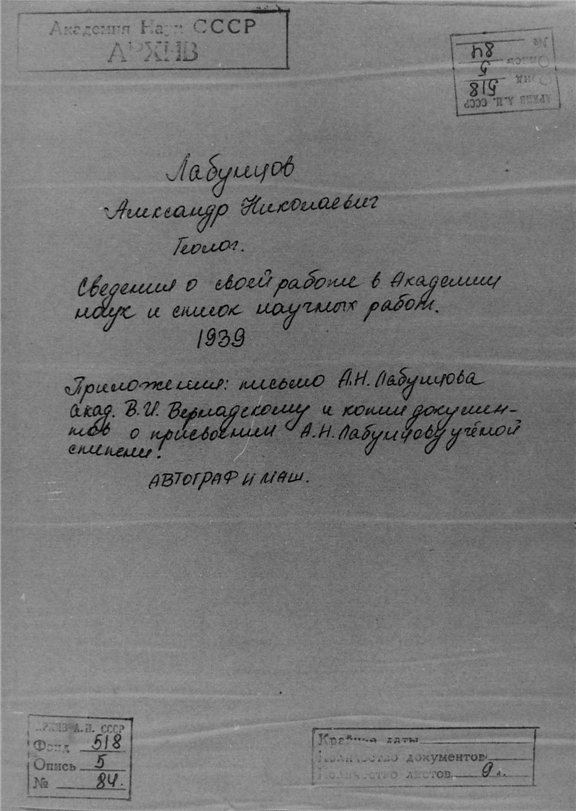 Академия Наук СССР
АРХИВ
АРХИВ А.Н. СССР
Фонд 518
Опись 5
№ 84
Лабунцов
Александр Николаевич
Геолог.
Сведения о своей работе в Академии
наук и список научных работ.
1939
Приложения: письмо А.Н. Лабунцова
акад. В.И. Вернадскому и копии докумен-
тов о присвоении А.Н. Лабунцову учёной
степени.
АВТОГРАФ И МАШ.
АРХИВ А.Н. СССР
Фонд 518
Опись 5
№ 84.
Крайние даты
Количество документов
Количество листов 9 л.